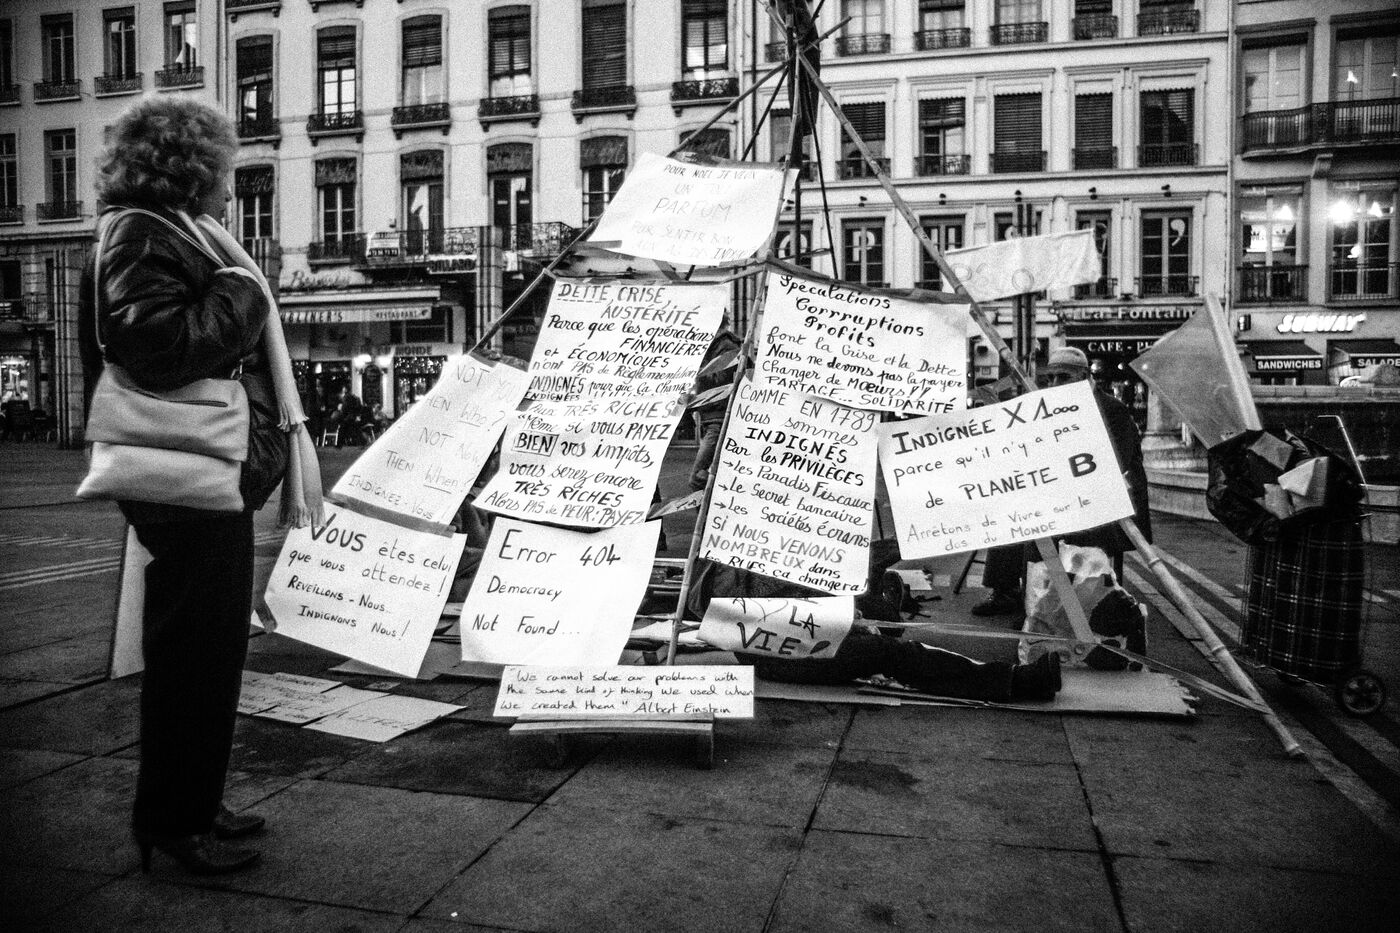 POUR NOËL JE VEUX
UN
PARFUM
POUR SENTIR BON
DETTE CRISE,
AUSTERITÉ
Parce que les opérations
FINANCIÈRES
et ÉCONOMIQUES
n'ont PAS de Réglementation
INDIGNÉS pour que ça Change
INDIGNÉES
Aux TRÈS RICHES
"Même si vous PAYEZ
BIEN vos impôts,
vous serez encore
TRÈS RICHES
Alors PAS de PEUR: PAYEZ
Spéculations
Corrruptions
Profits
font la Crise et la Dette
Nous ne devons pas la payer
Changer de Mœurs!!
PARTAGE... SOLIDARITÉ
COMME EN 1789
Nous sommes
INDIGNÉS
Par les PRIVILÈGES
→ les Paradis Fiscaux
→ le Secret bancaire
→ les Sociétés écrans
SI NOUS VENONS
NOMBREUX dans
les RUES, ça changera!
INDIGNÉE X 1000
parce qu'il n'y a pas
de PLANÈTE B
Arrêtons de Vivre sur le
dos du MONDE
NOT YOU
THEN Who?
NOT NOW
THEN When?
INDIGNEZ-VOUS
VOUS êtes celui
que vous attendez!
REVEILLONS-NOUS...
INDIGNONS NOUS!
Error 404
Démocracy
Not Found...
A LA
VIE!
"We cannot solve our problems with
the same kind of thinking we used when
we created them" Albert Einstein
RESTAURANT
La Fontaine
CAFE - P
SUBWAY
SANDWICHES
SALADE